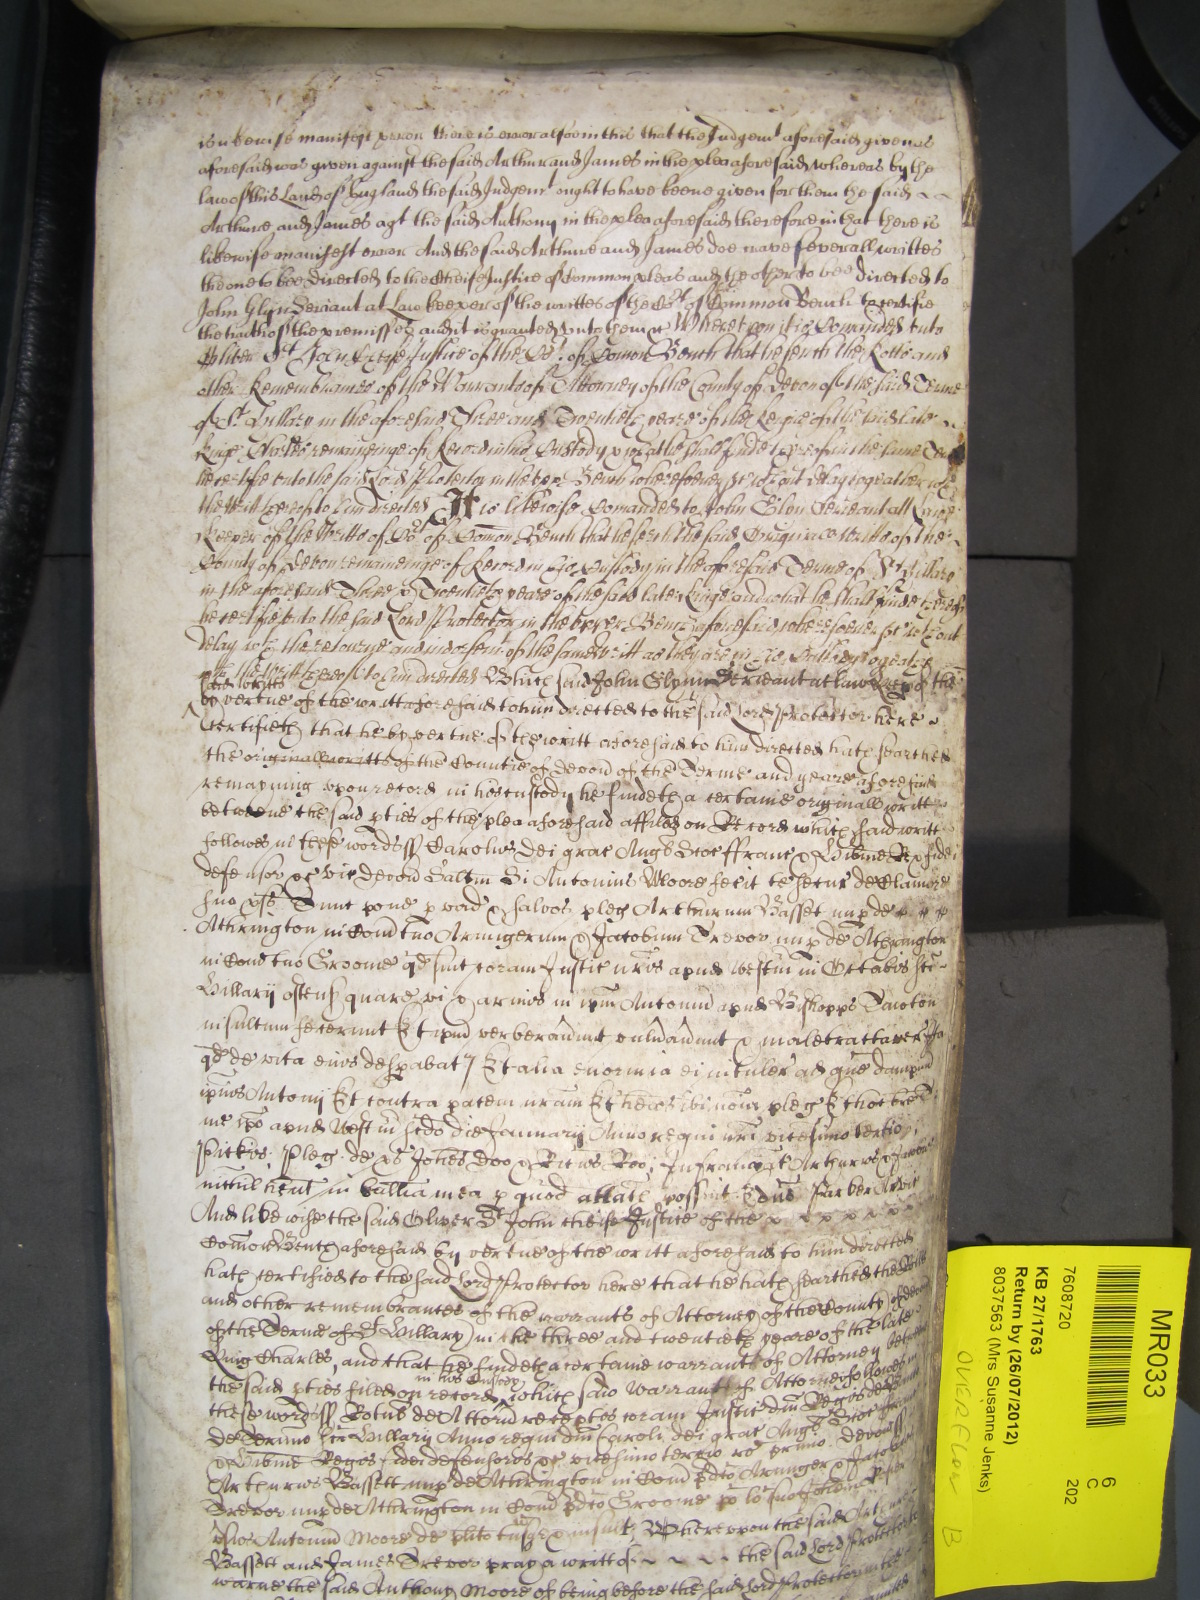 is likewise manifest error there is error alsoe in this that the Judgemt aforesaid given as
aforesaid was given against the said Arthur and James in the plea aforesaid whereas by the
law of this Land of England the said Judgemt ought to have beene given for them the said
Arthure and James agt the said Anthony in the plea aforesaid therefore in that there is
likewise manifest error And the said Arthure and James doe crave severall writtes
the one to bee directed to the Cheife Justice of Common pleas and the other to bee directed to
John Glyn Seriant at Law keeper of the writtes of the Cot of Common Bench to certifie
the truth of the premisses and it is granted unto them &c Whereupon it is Comanded unto
Oliver St John Cheife Justice of the Cot of Comon Bench that he serch the Rolls and
other Remembrances of the Warrants of Attorney of the County of Devon of the said Terme
of St Hillary in the aforesaid Three and Twentieth yeare of the Reigne of the said late
Kinge Charles remaininge of Record in his Custody & what he shall finde thereof in the same
he certifie unto the said Lord Protector in the upper Bench wheresoever &c without delay together wth
the writt thereof to him directed It is likewise Comanded to John Glyn Serieant att Lawe
Keeper of the Writts of Cot of Comon Bench that he serch the said Originall writts of the
County of Devon remaininge of Record in his Custody in the aforesaid Terme of St Hillary
in the aforesaid Three & Twentieth yeare of the said late Kinge and what he shall finde thereof
he certifie unto the said Lord Protector in the upper Bench aforesaid wheresoever &c without
delay wth the retourne and indosemt of the same writt as they are in his Custody together
wth the writt thereof to him directed Which said John Glynn Serieant at law keeper of the
said writts
by vertue of the writt aforesaid to him directed to the said Lord Protector here
Certifieth that he by vertue of the writt aforesaid to him directed hath searched
the originall writts of the Countie of Devon of the Terme and yeare aforesaid
remayning upon record in his custody he findeth a certaine originall writt
betweene the said pties of the plea aforesaid affiled on Record which said writt
followes in these words ss Carolus Dei grac Angl Scoc ffranc & Hibnie Rx fidei
defensor &c vic Devon Saltm Si Antonius Moore fecit te secur de Clamore
suo &c Tunc pone p vad & salvos pleg Arthurum Basset nup de
Athrington in Com tuo Armigerum & Jacobum Trevor nup de Athrington
in Com tuo Groome qd sint coram Justic nris apud Westm in Octabis Sci
Hillarij ostens quare vi & armis in ipm Antonium apud Bishopps Tawton
insultum fecerunt Et ipm verberaverunt vulnaverunt & maletractaver Ita
qd de vita eius despabat Et alia enormia ei intuler ad grave dampnum
ipius Antonij Et contra pacem nram Et heas ibi noia pleg & hoc breve
me ipo apud Westm scdo die January Anno regni nri vicesimo tertio
Pickis Pleg de ps Johes Doo & Ricus Roo Infranoiat Arthurus & Jacobus
nichil hent in balliva mea p quod attach possint
And likewise the said Oliver St John cheife Justice of the
Common Bench aforesaid by vertue of the writt aforesaid to him directed
hath certified to the said Lord Protector here that he hath searched the Rolls
and other remembrances of the warrants of Attorney of the County of Devon
of the Terme of St Hillary in the three and twentieth yeare of the late
King Charles and that he findeth a certaine warrant of Attorney betweene
in his Custody
the said pties filed on record which said warrant of Attorney followes in
these words ss Rotuls de Attorn receptis coram Justic dni Regis de Banco
de Termino Sci Hillary Anno regni dni Caroli dei grac Angl Scoc ffranc
& Hibnie Regis fidei defensoris &c vicesimo tercio ro primo Devon ss
Arthurus Bassett nup de Athrington in Com pdto Armiger & Jacobus
Trevor nup de Athrington in Com pdto Groome po lo suo
vsus Antonium Moore de plito tnsgr & insult Whereupon the said Arthur
Bassett and James Trevor pray a writt of the said Lord Protector to
warne the said Anthony Moore of being before the said Lord Protector
MR033
6
C
202
7608720
KB 27/1763
Return by (26/07/2012)
8037563 (Mrs Susanne Jenks)
OVERFLOW B